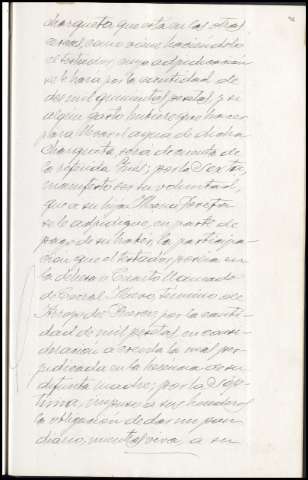 charqueta que esta en las
como aun haciendolo
cuya adjudicacion
se le hara por la cantidad de
dos mil quinientas pesetas, y si
algun gasto hubiere que hacer
para llevar el agua de dicha
charqueta, sera de cuenta de
la referida por la Sexta,
manifesto ser su voluntad,
que a su hija Maria Josefa
se le adjudique, en parte de
pago de su haber, la participa-
cion que el testador poseia en
la dehesa o Cuarto llamado
de Corral Nuevo, termino de
por la canti-
dad de mil pesetas en consi-
deracion a estar la mal per-
judicada en la herencia de su
difunta madre; por la Sep-
tima, impuso a sus herederos
la obligacion de dar un pan
diario, mientras viva, a su